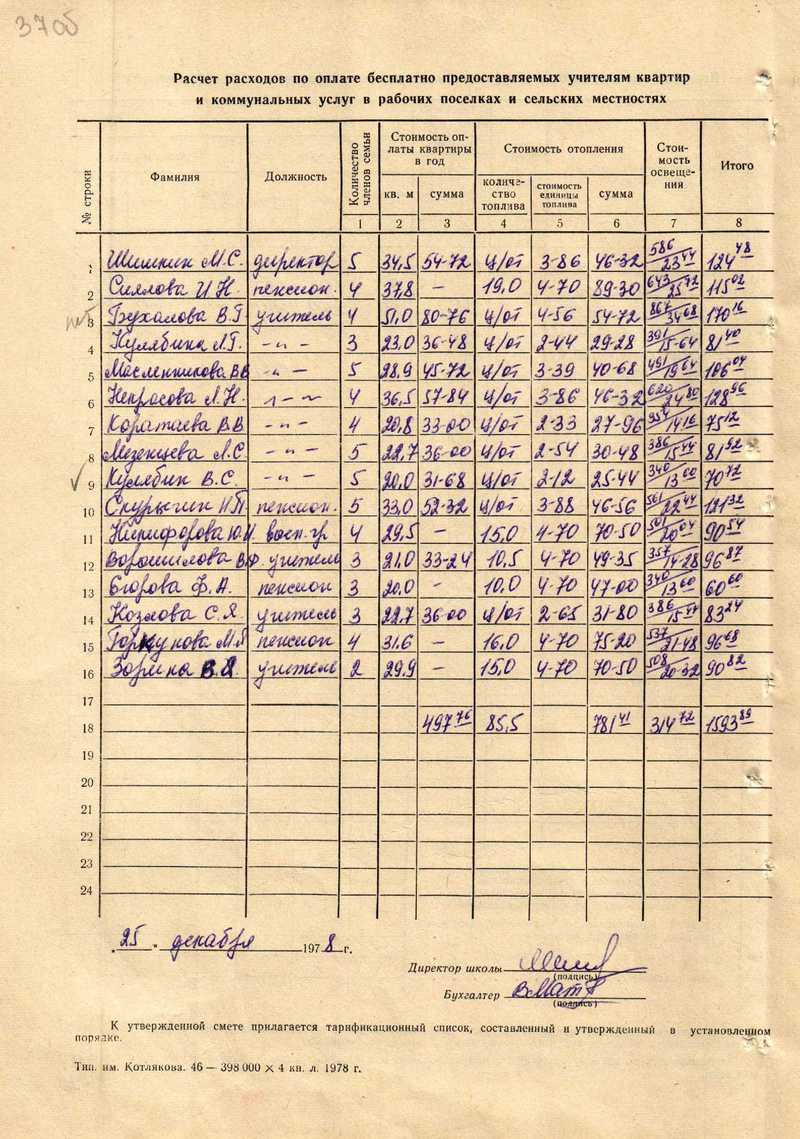 370б
Расчет расходов по оплате бесплатно предоставляемых учителям квартир
и коммунальных услуг в рабочих поселках и сельских местностях
№ строки | Фамилия | Должность | Количество членов семьи | Стоимость оплаты квартиры в год | Стоимость отопления | Стоимость освещения | Итого
кв. м | сумма | количество топлива | стоимость единицы топлива | сумма
1 2 3 4 5 6 7 8
1 Шишкин М.С. директор 5 34,5 54-72 ц/от 3-86 46-32 586/23 44 124 48
2 Сиялова И.Н. пенсион. 4 37,8 – 19,0 4-70 89-30 643/25 72 115 02
3 Бухалова В.Г. учитель 4 51,0 80-76 ц/от 4-56 54-72 867/34 68 170 16
4 Кулябина Л.Г. -"- 3 23,0 36-48 ц/от 2-44 29-28 391/15-64 81 40
5 Масленникова В.В. -"- 5 28,9 45-72 ц/от 3-39 40-68 491/19 64 106 04
6 Некрасова Л.Н. -"- 4 36,5 57-84 ц/от 3-86 46-32 620/24 80 128 96
7 Коратаева В.В. -"- 4 20,8 33-00 ц/от 2-33 27-96 354/14 16 75 12
8 Мезенцева Л.С. -"- 5 22,7 36-00 ц/от 2-54 30-48 386/15 44 81 92
9 Кулябин В.С. -"- 5 20,0 31-68 ц/от 2-12 25-44 340/13 60 70 72
10 Скурыгин Н.П. пенсион. 5 33,0 52-32 ц/от 3-88 46-56 561/22 44 121 32
11 Никифорова Ю.И. восп.гр. 4 29,5 – 15,0 4-70 70-50 501/20 04 90 54
12 Ворошилова В.Ф. учитель 3 21,0 33-24 10,5 4-70 49-35 357/14-28 96 87
13 Егорова Ф.А. пенсион 3 20,0 – 10,0 4-70 47-00 340/13 60 60 60
14 Козлова С.Я. учитель 3 22,7 36-00 ц/от 2-65 31-80 386/15 44 83 24
15 Горкунова М.П. пенсион 4 31,6 – 16,0 4-70 75-20 537/21-48 96 68
16 Зорина В.Я. учитель 2 29,9 – 15,0 4-70 70-50 508/20-32 90 82
17
18 497 76 85,5 781 41 314 72 1593 89
19
20
21
22
23
24
„25" декабря 1978 г.
Директор школы
(подпись)
Бухгалтер
(подпись)
К утвержденной смете прилагается тарификационный список, составленный и утвержденный в установленном
порядке.
Тип. им. Котлякова. 46 — 398 000 × 4 кв. л. 1978 г.